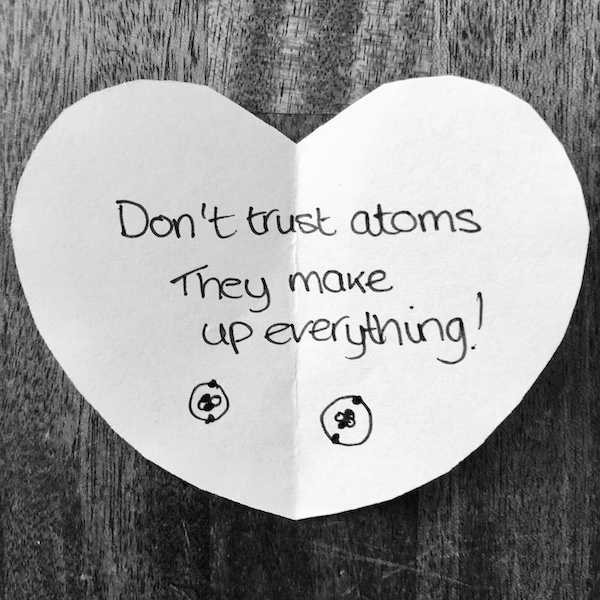 Don't trust atoms
They make
up everything!